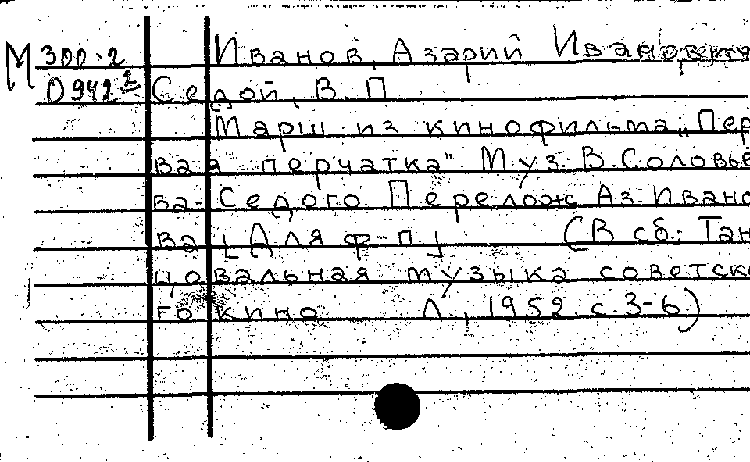 М 300-2 Иванов, Азарий Иванович
О 942 2 Седой, В. П.
Марш из кинофильма „Пер
вая перчатка" Муз. В. Соловье
ва-Седого Перелож Аз. Ивано
ва [Для ф-п] (В сб.: Тан
цовальная музыка советско
го кино Л., 1952 с. 3-6)